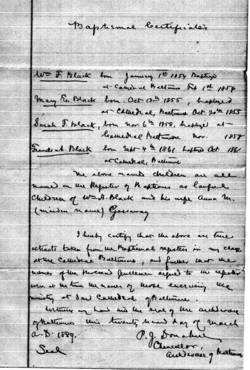 Baptismal Certificate
Wm F. Black born January 1st 1854 Baptized
at Cathedral Baltimore Feb 1st 1854
Mary E. Black born Oct 13th 1855, baptized
at Cathedral, Baltimore Oct 30th 1855
Sarah F. Black, born Nov 6th 1858, baptized at
Cathedral Baltimore Nov. 1858
Francis A. Black born Sept 4th 1861 baptized Oct 1861
at Cathedral, Baltimore
The above named children are all
named on the Register of Baptisms as lawful
Children of Wm H. Black and his wife Anna M.
(maiden name)
I hereby certify that the above are true
extracts taken from the Baptismal registers in my charge
at the Cathedral Baltimore, and further that the
names of the Priests affixed to the
were at the time the names of those exercising the
ministry at said Cathedral of Baltimore.
Witness my hand and the seal of the archdiocese
of Baltimore this twenty second day of March
A.D. 1889.
P. J. Donahue
Chancellor,
Archdiocese of Baltimore
Seal